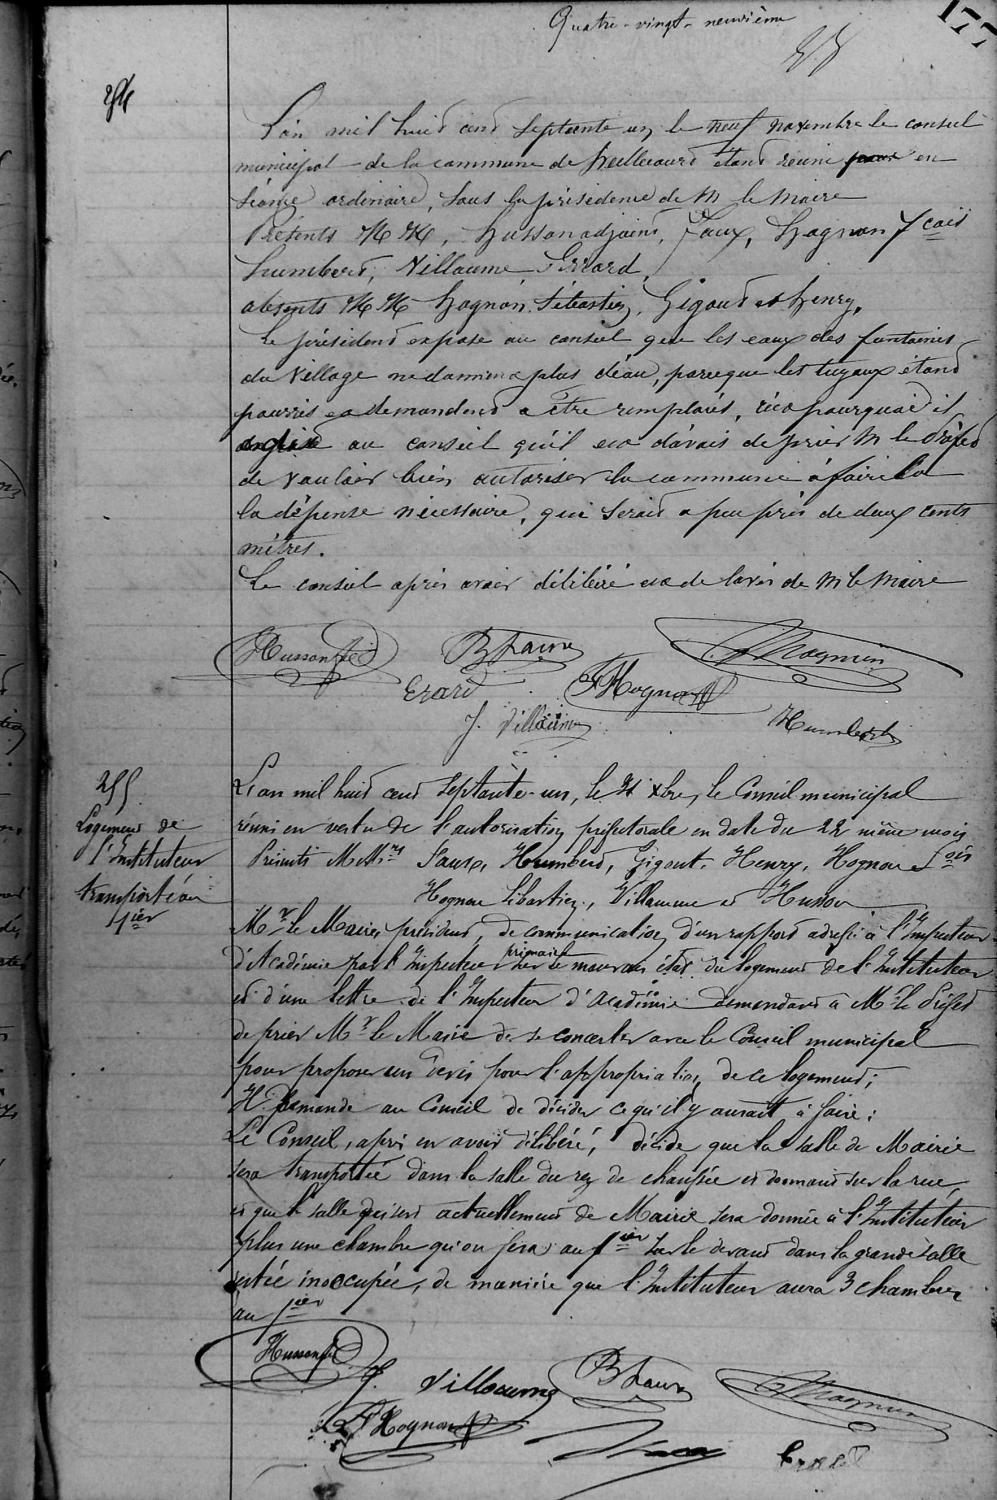 Quatre-vingt-neuvième
177
L'an mil huit cent septante un le neuf novembre le conseil
municipal de la commune de heillecourt étant réuni pour en
séance ordinaire, sous la présidence de M le Maire
Présents MM, husson adjoint, faux, hognon fçois
humbert, Villaume Errard,
absents MM hognon Sébastien, Gigout et henry,
Le président expose au conseil que les eaux des fontaines
du Village ne donnent plus d'eau, parceque les tuyaux étant
pourris et demandent a être remplacés, c'est pourquoi il
au conseil qu'il est d'avis de prier M le Préfet
de vouloir bien autoriser la commune à faire la
la dépense nécessaire, qui serait a peu près de deux cents
mètres.
Le conseil après avoir délibéré est de lavis de M le Maire
Husson
B faux
Hognon
Erard
F Hognon
J. Villaume
Humbert
255
Logement de
l'Instituteur
transporté au
1ier
L'an mil huit cent septante-un, le 31 xbre, le Conseil municipal
réuni en vertu de l'autorisation préfectorale en date du 22 même mois
Présents M.Mrs Faux, Humbert, Gigout, Henry, Hognon fois
Hognon Sébastien, Villaume et Husson
Mr le Maire, président, de communication d'un rapport adressé à l'Inspecteur
d'Académie par l'Inspecteur primaire sur le mauvais état du logement de l'Instituteur
et d'une lettre de l'Inspecteur d'académie demandant à Mr le Préfet
de prier Mr le Maire de se concerter avec le Conseil municipal
pour proposer un devis pour l'appropriation de ce logement;
Il demande au Conseil de décider ce qu'il y aurait à faire;
Le Conseil, après en avoir délibéré, décide que la salle de Mairie
sera transportée dans la salle du rez de chaussée et donnant sur la rue,
et que la salle qui sert actuellement de Mairie sera donnée à l'Instituteur
plus une chambre qu'on fera au 1ier sur le devant dans la grande salle
restée inoccupée, de manière que l'Instituteur aura 3 chambres
au 1ier
Husson
J. Villaume
B faux
Hognon
F Hognon